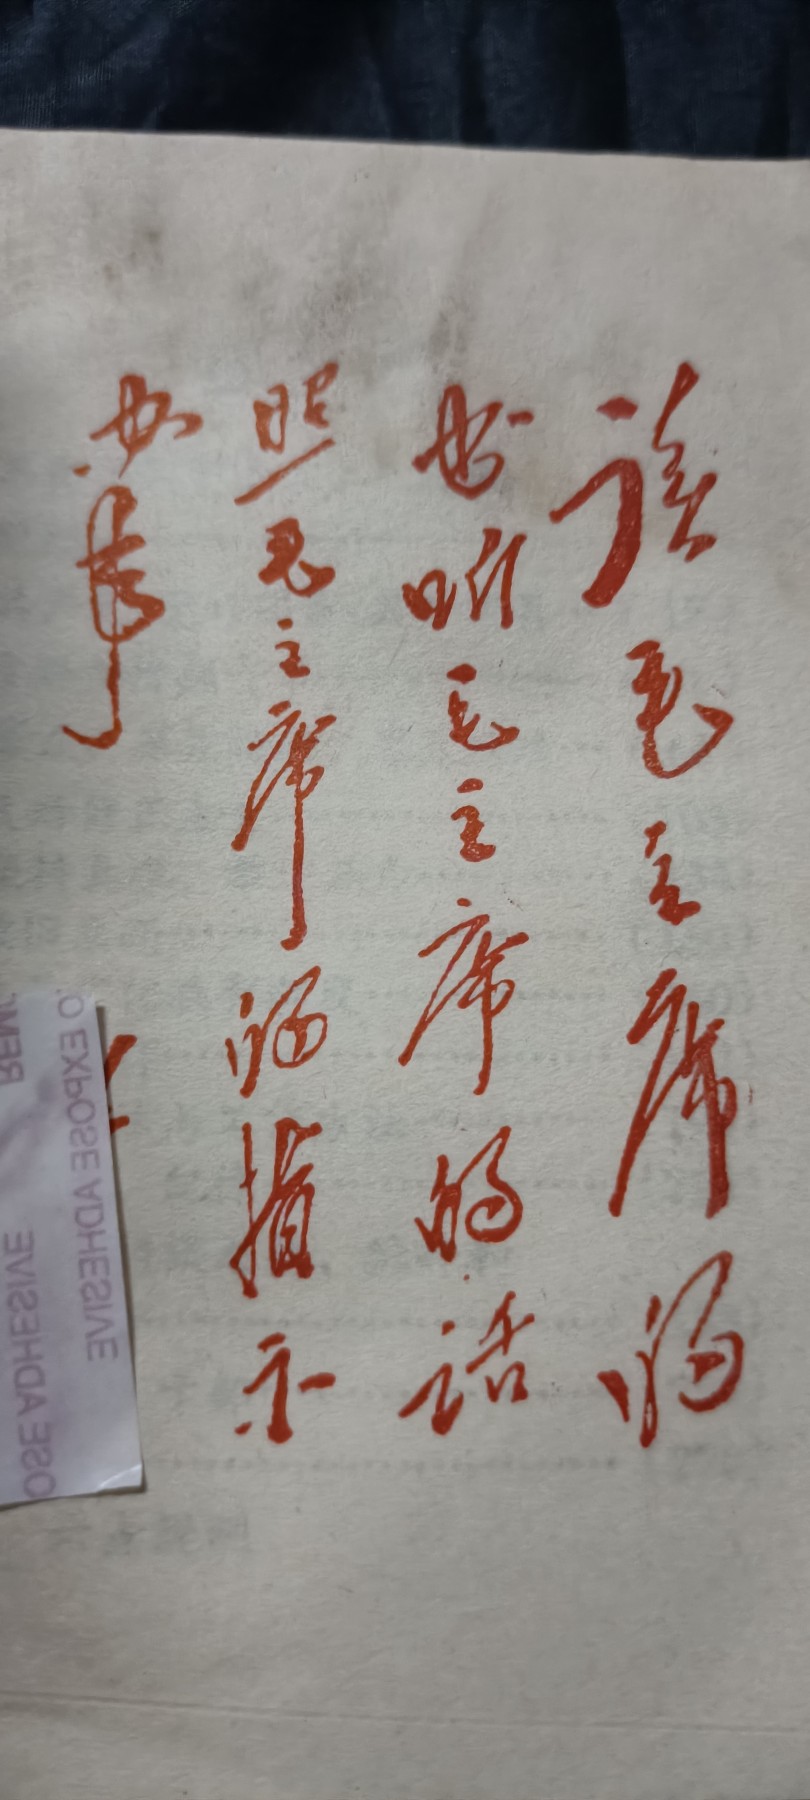 读毛主席的
书听毛主席的话
照毛主席的指示
办事
O EXPOSE ADHESIVE
REM
OSE ADHESIVE